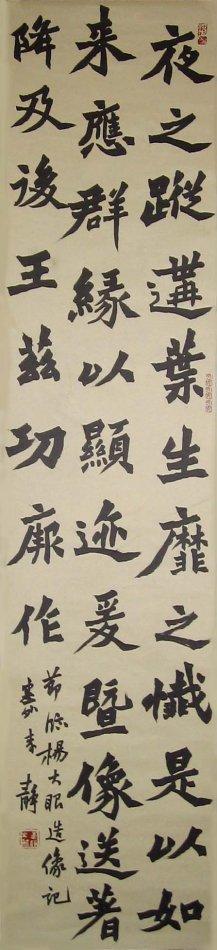 夜之蹤遘葉生靡之懺是以如
来應群緣以顯迹爰暨像送著
降及後王茲功厥作
節臨楊大眼造像記
李靜